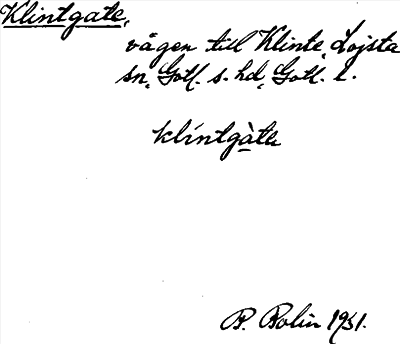 Klintgate,
vägen till Klinte, Lojsta
sn, Gotl. s. hd, Gotl. l.
klíntgàtε
B. Bolin 1951.